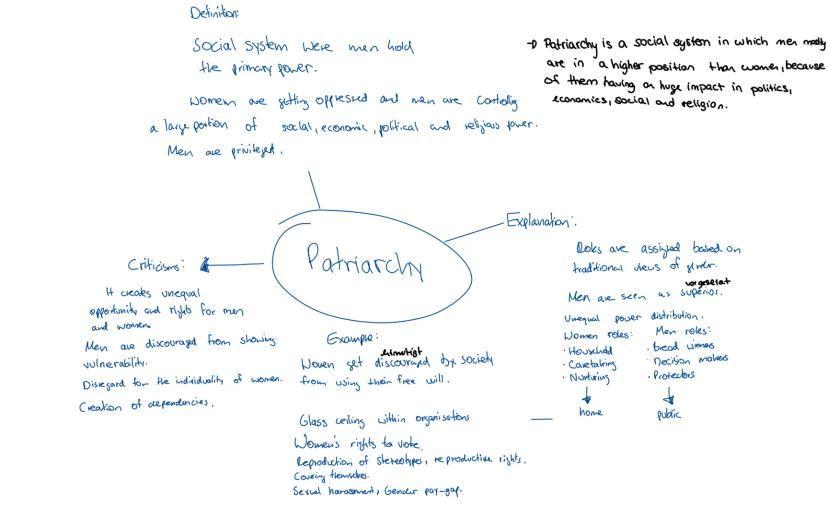 Definition:
Social system were men hold
the primary power.
Women are getting oppressed and men are controlling
a large portion of social, economic, political and religious power.
Men are privileged.
→ Patriarchy is a social system in which men mostly
are in a higher position than women, because
of them having an huge impact in politics,
economics, social and religion.
Patriarchy
Explanation:
Roles are assigned based on
traditional views of gender.
vorgesetzt
Men are seen as superior.
Unequal power distribution.
Women roles:
· Household
· Caretaking
· Nurturing
home
Men roles:
· bread winners
· Decision makers
· Protectors
public
Criticisms:
It creates unequal
opportunity and rights for men
and women
Men are discouraged from showing
vulnerability.
Disregard for the individuality of women.
Creation of dependencies.
Example:
entmutigt
Women get discouraged by society
from using their free will.
Glass ceiling within organisations
Women's rights to vote.
Reproduction of stereotypes, reproductive rights.
Covering themselves.
Sexual harassment, Gender pay-gap.